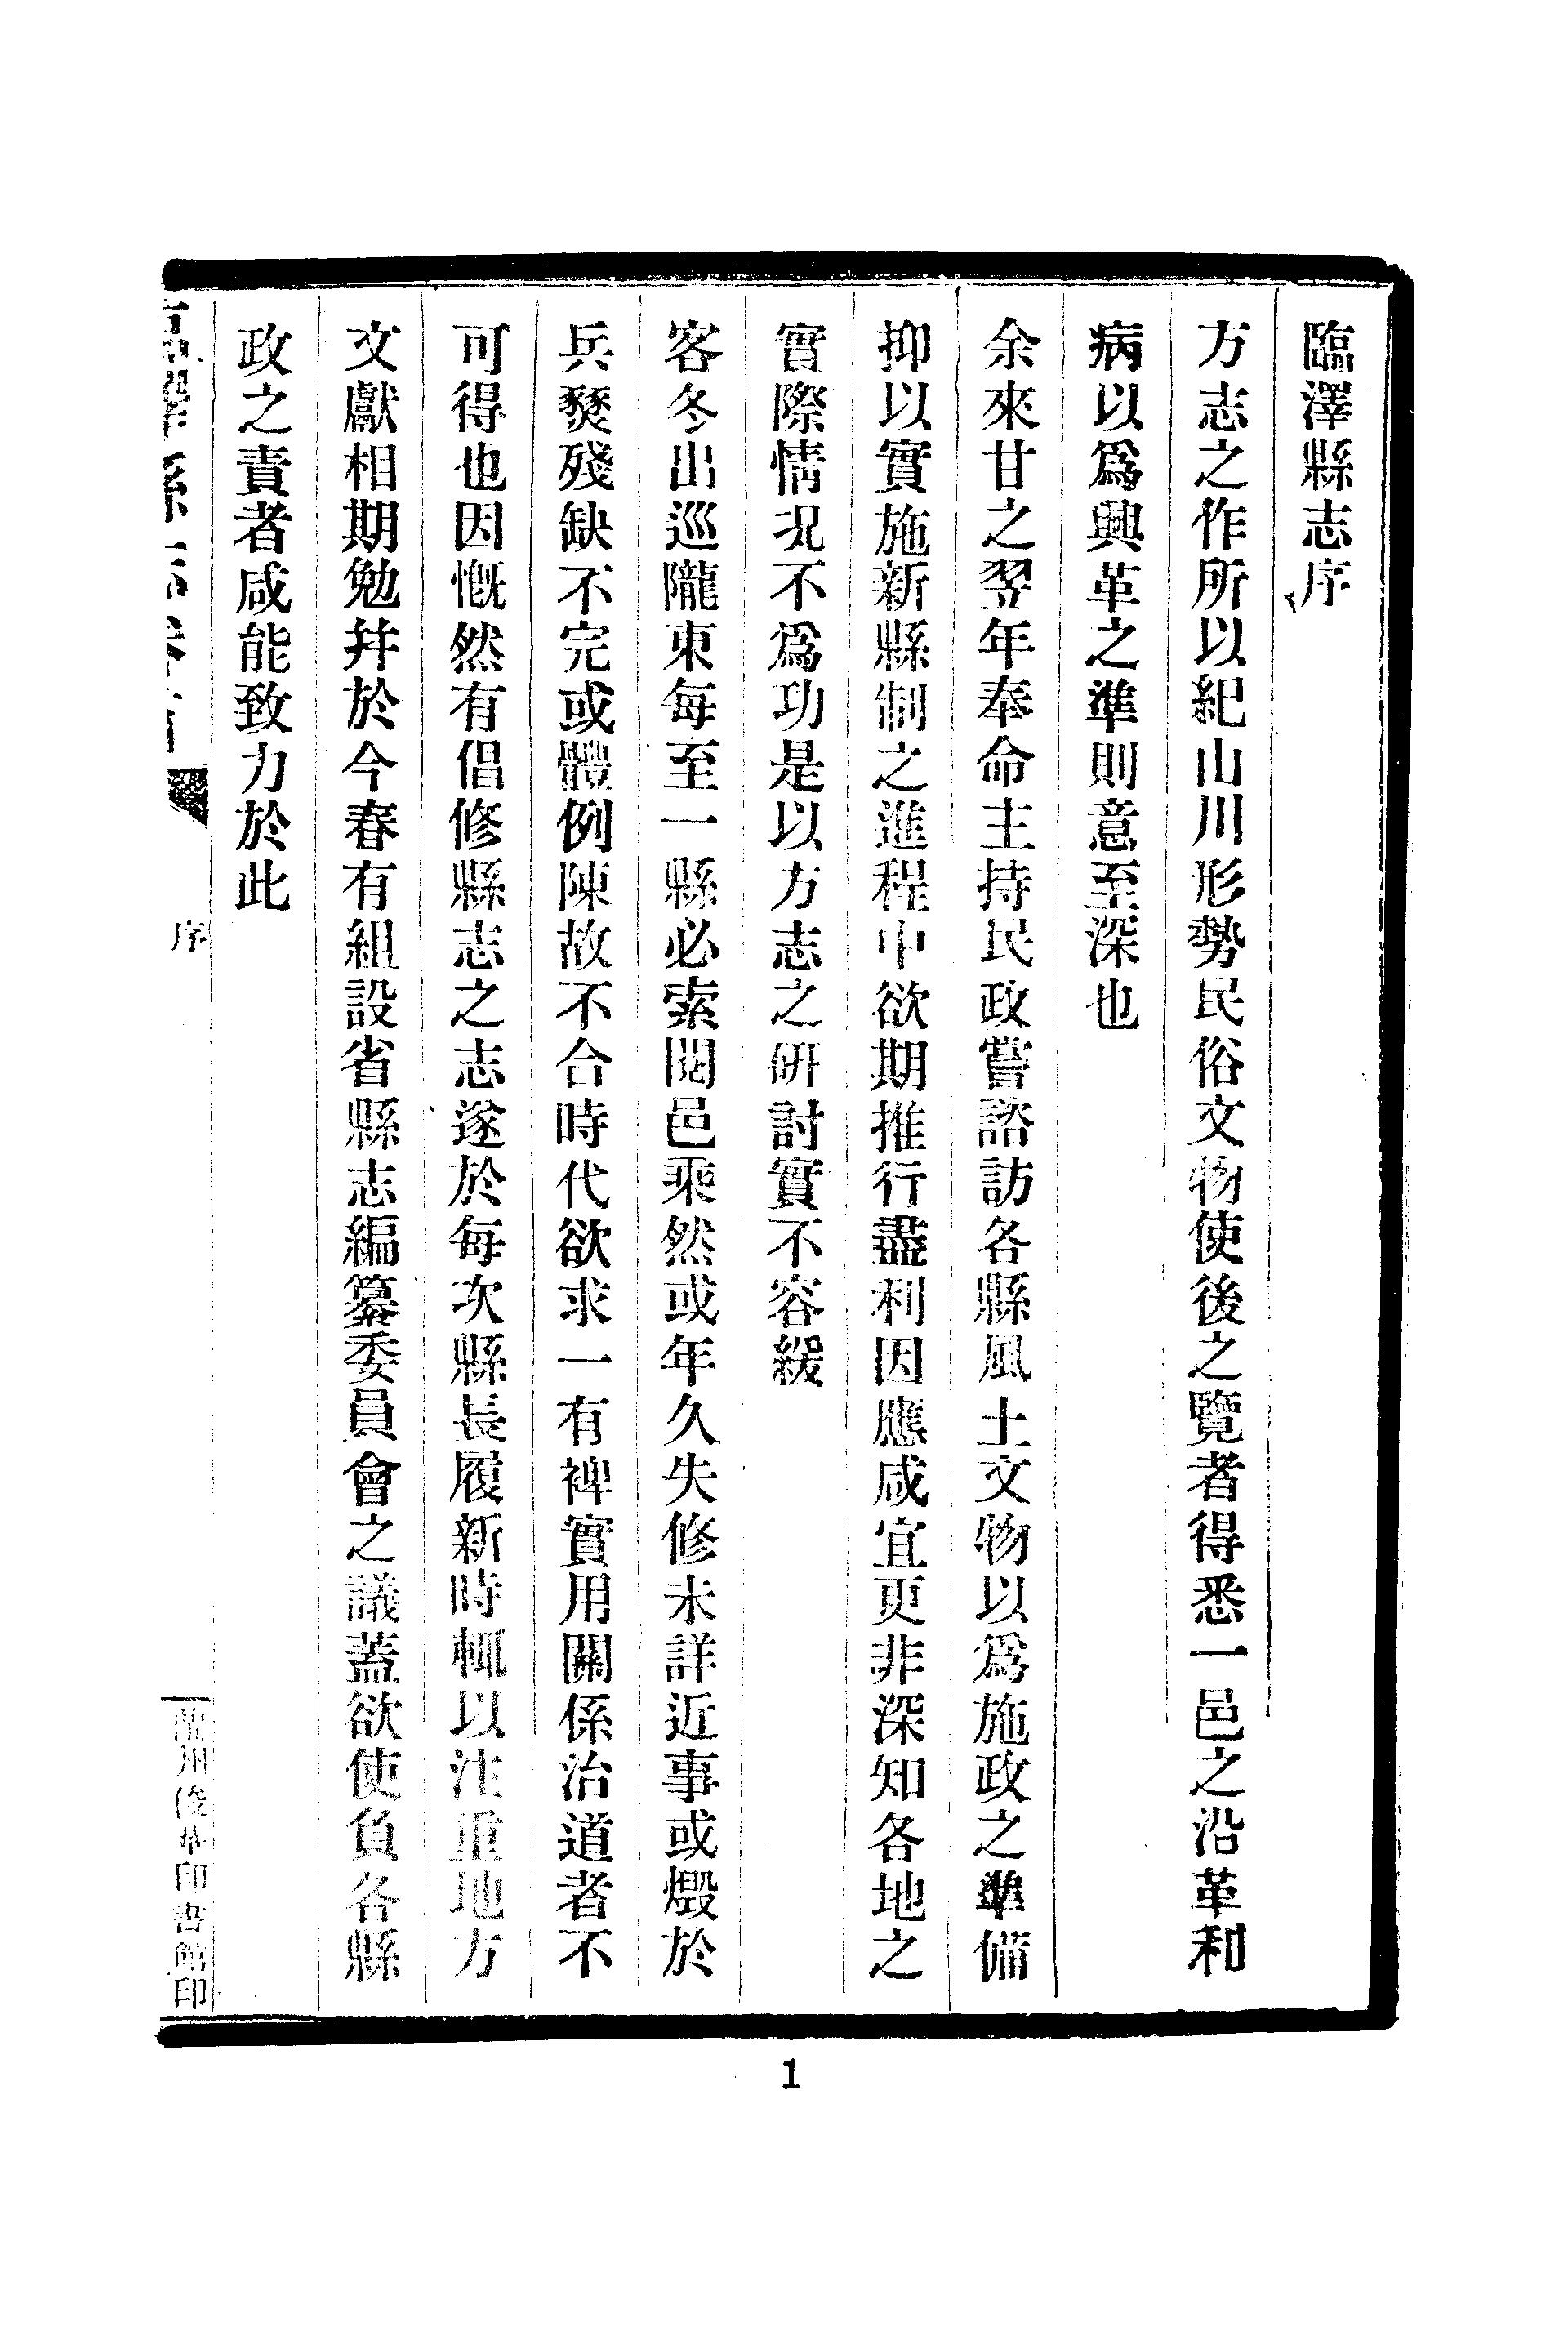 臨澤縣志序
方志之作所以紀山川形勢民俗文物使後之覽者得悉一邑之沿革利
病以爲興革之準則意至深也
余來甘之翌年奉命主持民政嘗諮訪各縣風土文物以爲施政之準備
抑以實施新縣制之進程中欲期推行盡利因應咸宜更非深知各地之
實際情況不爲功是以方志之研討實不容緩
客冬出巡隴東每至一縣必索閱邑乘然或年久失修未詳近事或燬於
兵燹殘缺不完或體例陳故不合時代欲求一有裨實用關係治道者不
可得也因慨然有倡修縣志之志遂於每次縣長履新時輒以注重地方
文獻相期勉并於今春有組設省縣志編纂委員會之議蓋欲使負各縣
政之責者咸能致力於此
澤縣志卷首 序 蘭州俊華印書館印
1